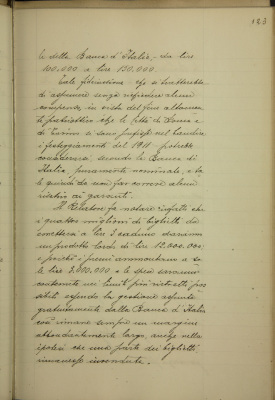 123
le della Banca d'Italia, da lire
100.000 a lire 150.000.
Tale fibriussione, che si tratterebbe
di assumere senza rispondere alcun
compenso, in vista del fine altamen
te patriottico che le città di Roma e
di Torino si sono prefisse nel bandire
i festeggiamenti del 1911 potrebbe
considerarsi, secondo la Banca di
Italia, puramente nominale, e ta
le quindi da non far correre alcun
rischio ai garanti.
Il Relatore fa notare infatti che
i quattro miglioni di biglietti da
emettersi a lire 3 cadauno daranno
un prodotto lordo di lire 12.000.000;
e poiché i premi ammontano a so
le lire 3.000.000 e le spese saranno
contenute nei limiti più ristretti pos
sibili essendo la gestione assunta
gratuitamente dalla Banca d'Italia
così rimane sempre un margine
straordinariamente largo, anche nella
ipotesi che una parte dei biglietti
rimanesse invenduta.